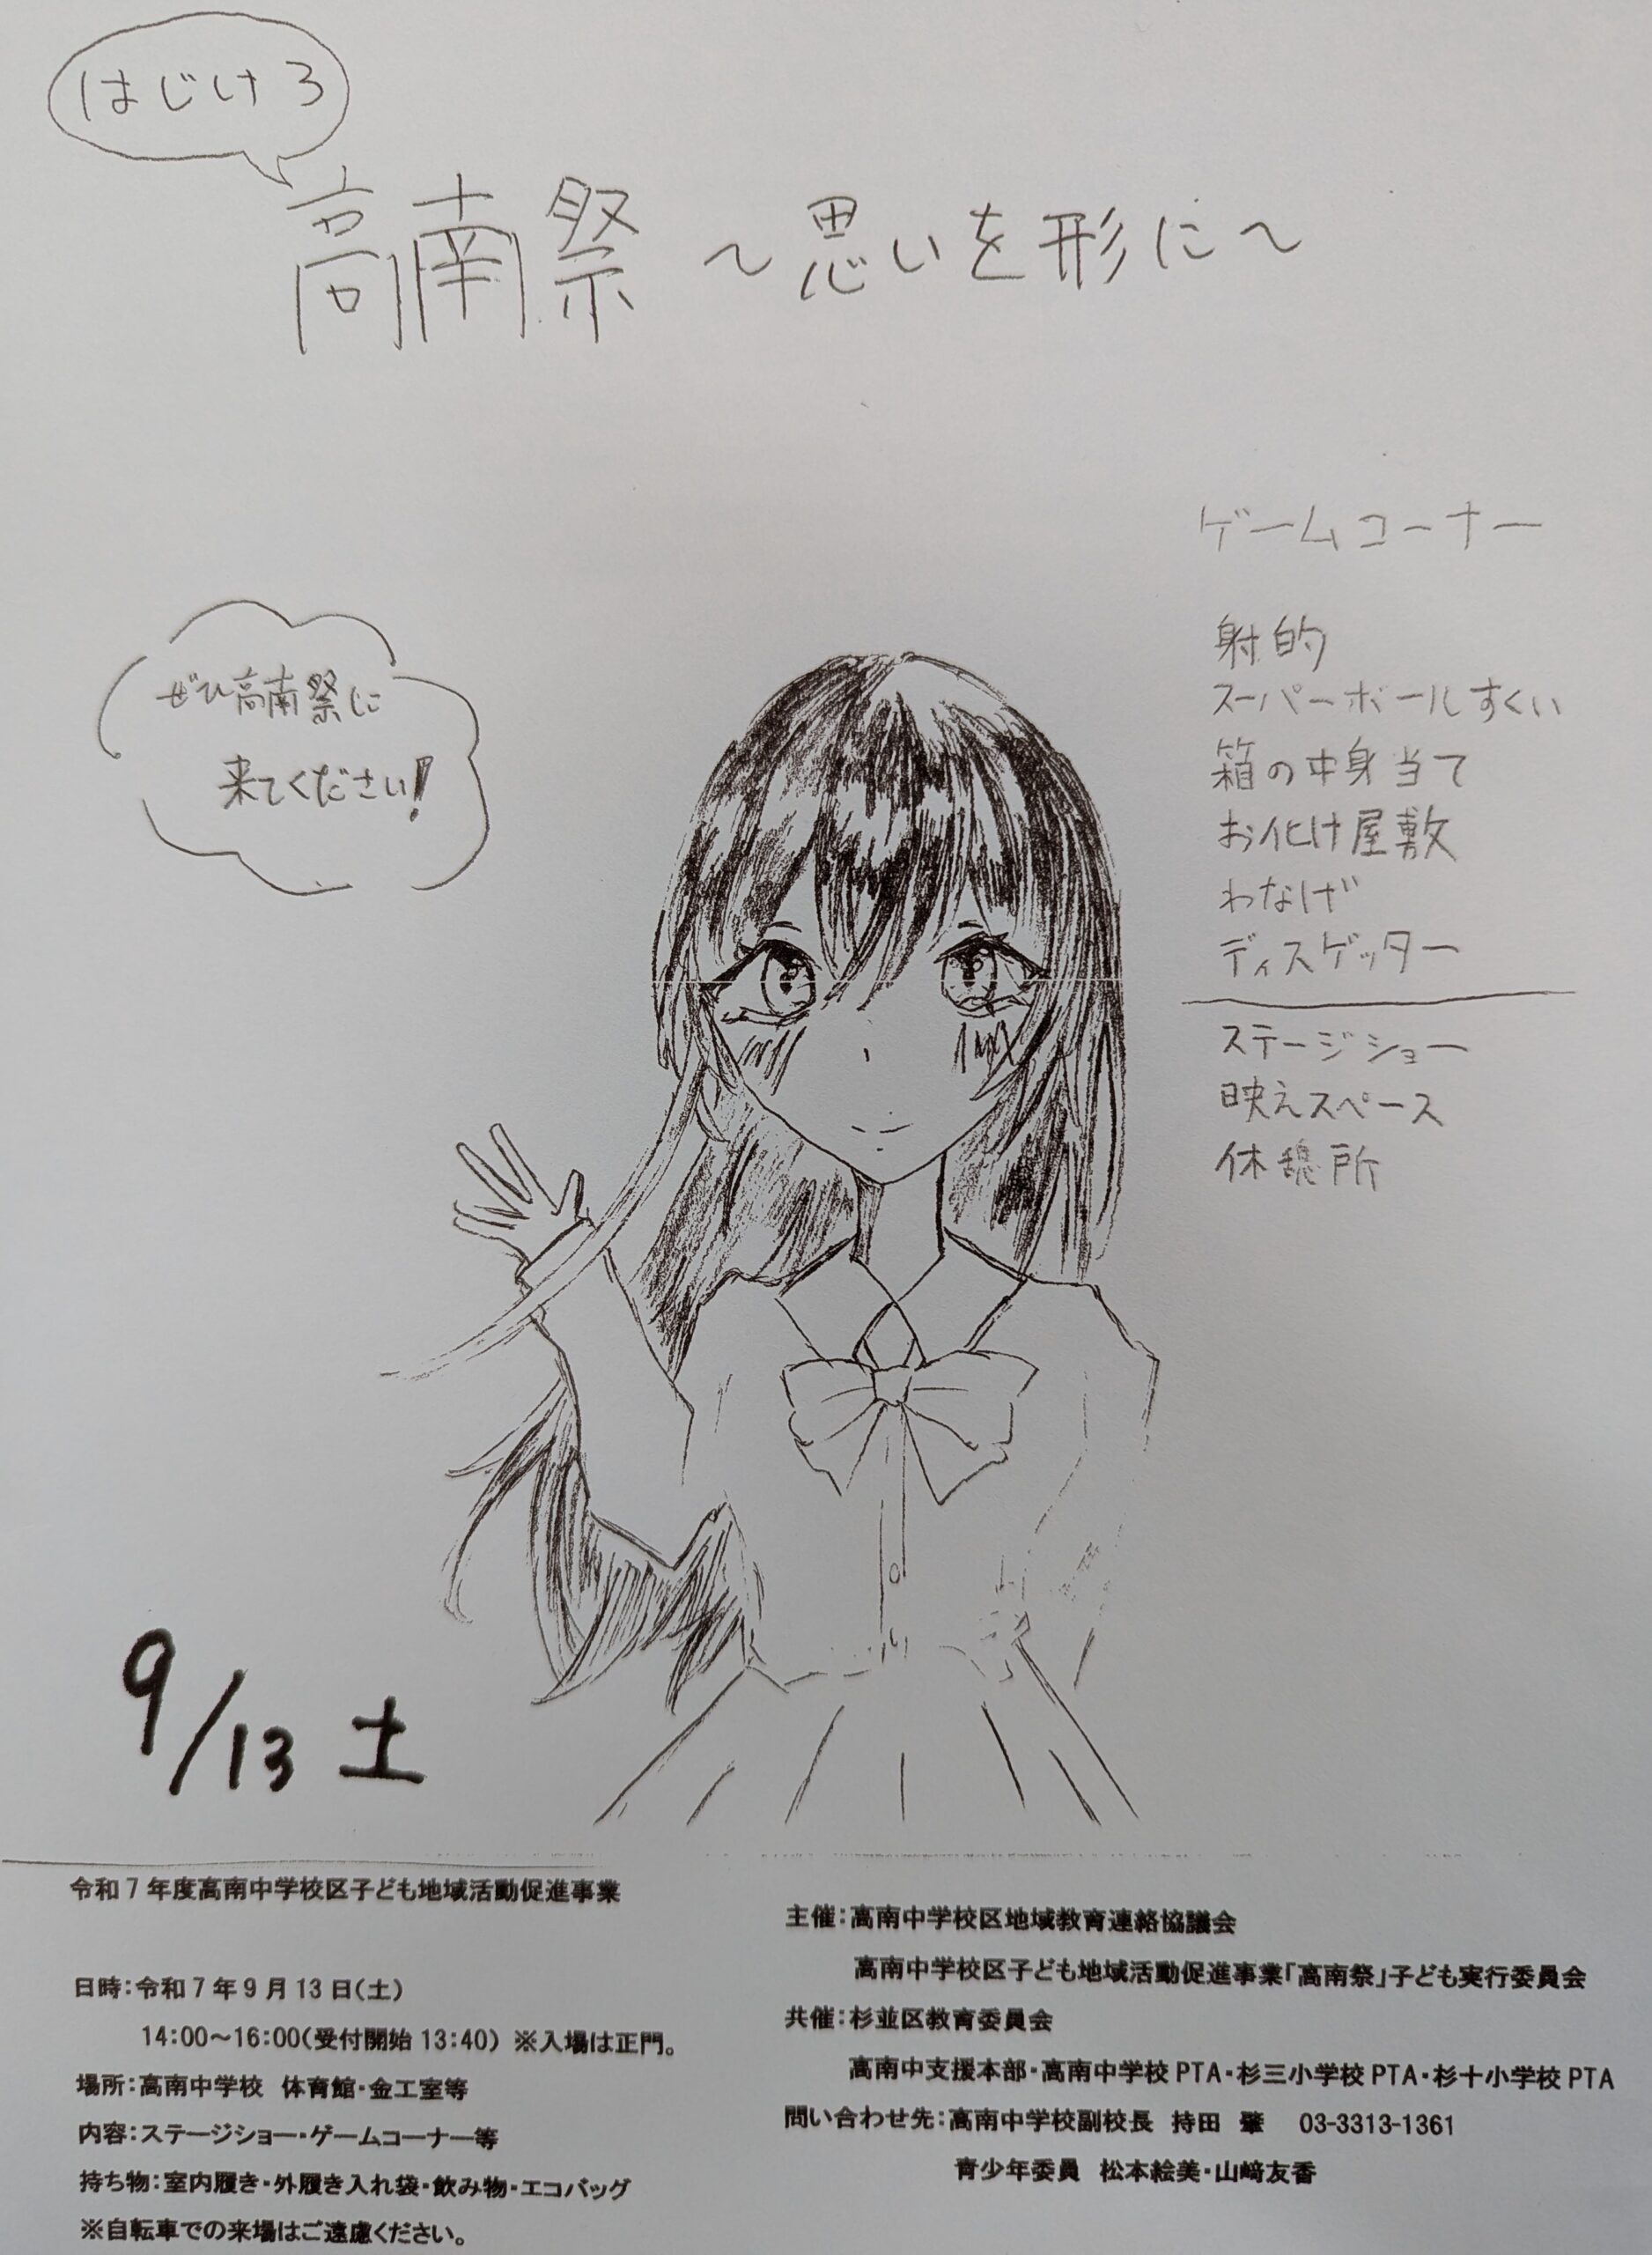 はじけろ
高南祭 ～思いを形に～
ゲームコーナー
射的
スーパーボールすくい
箱の中身当て
お化け屋敷
わなげ
ディスゲッター
ステージショー
映えスペース
休憩所
ぜひ高南祭に
来てください!
9/13 土
令和7年度高南中学校区子ども地域活動促進事業
日時:令和7年9月13日(土)
14:00～16:00(受付開始 13:40) ※入場は正門。
場所:高南中学校 体育館・金工室等
内容:ステージショー・ゲームコーナー等
持ち物:室内履き・外履き入れ袋・飲み物・エコバッグ
※自転車での来場はご遠慮ください。
主催:高南中学校区地域教育連絡協議会
高南中学校区子ども地域活動促進事業「高南祭」子ども実行委員会
共催:杉並区教育委員会
高南中支援本部・高南中学校PTA・杉三小学校PTA・杉十小学校PTA
問い合わせ先:高南中学校副校長 持田 肇 03-3313-1361
青少年委員 松本絵美・山﨑友香